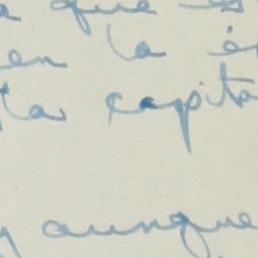 a que es
en la é
la capita
y aunque